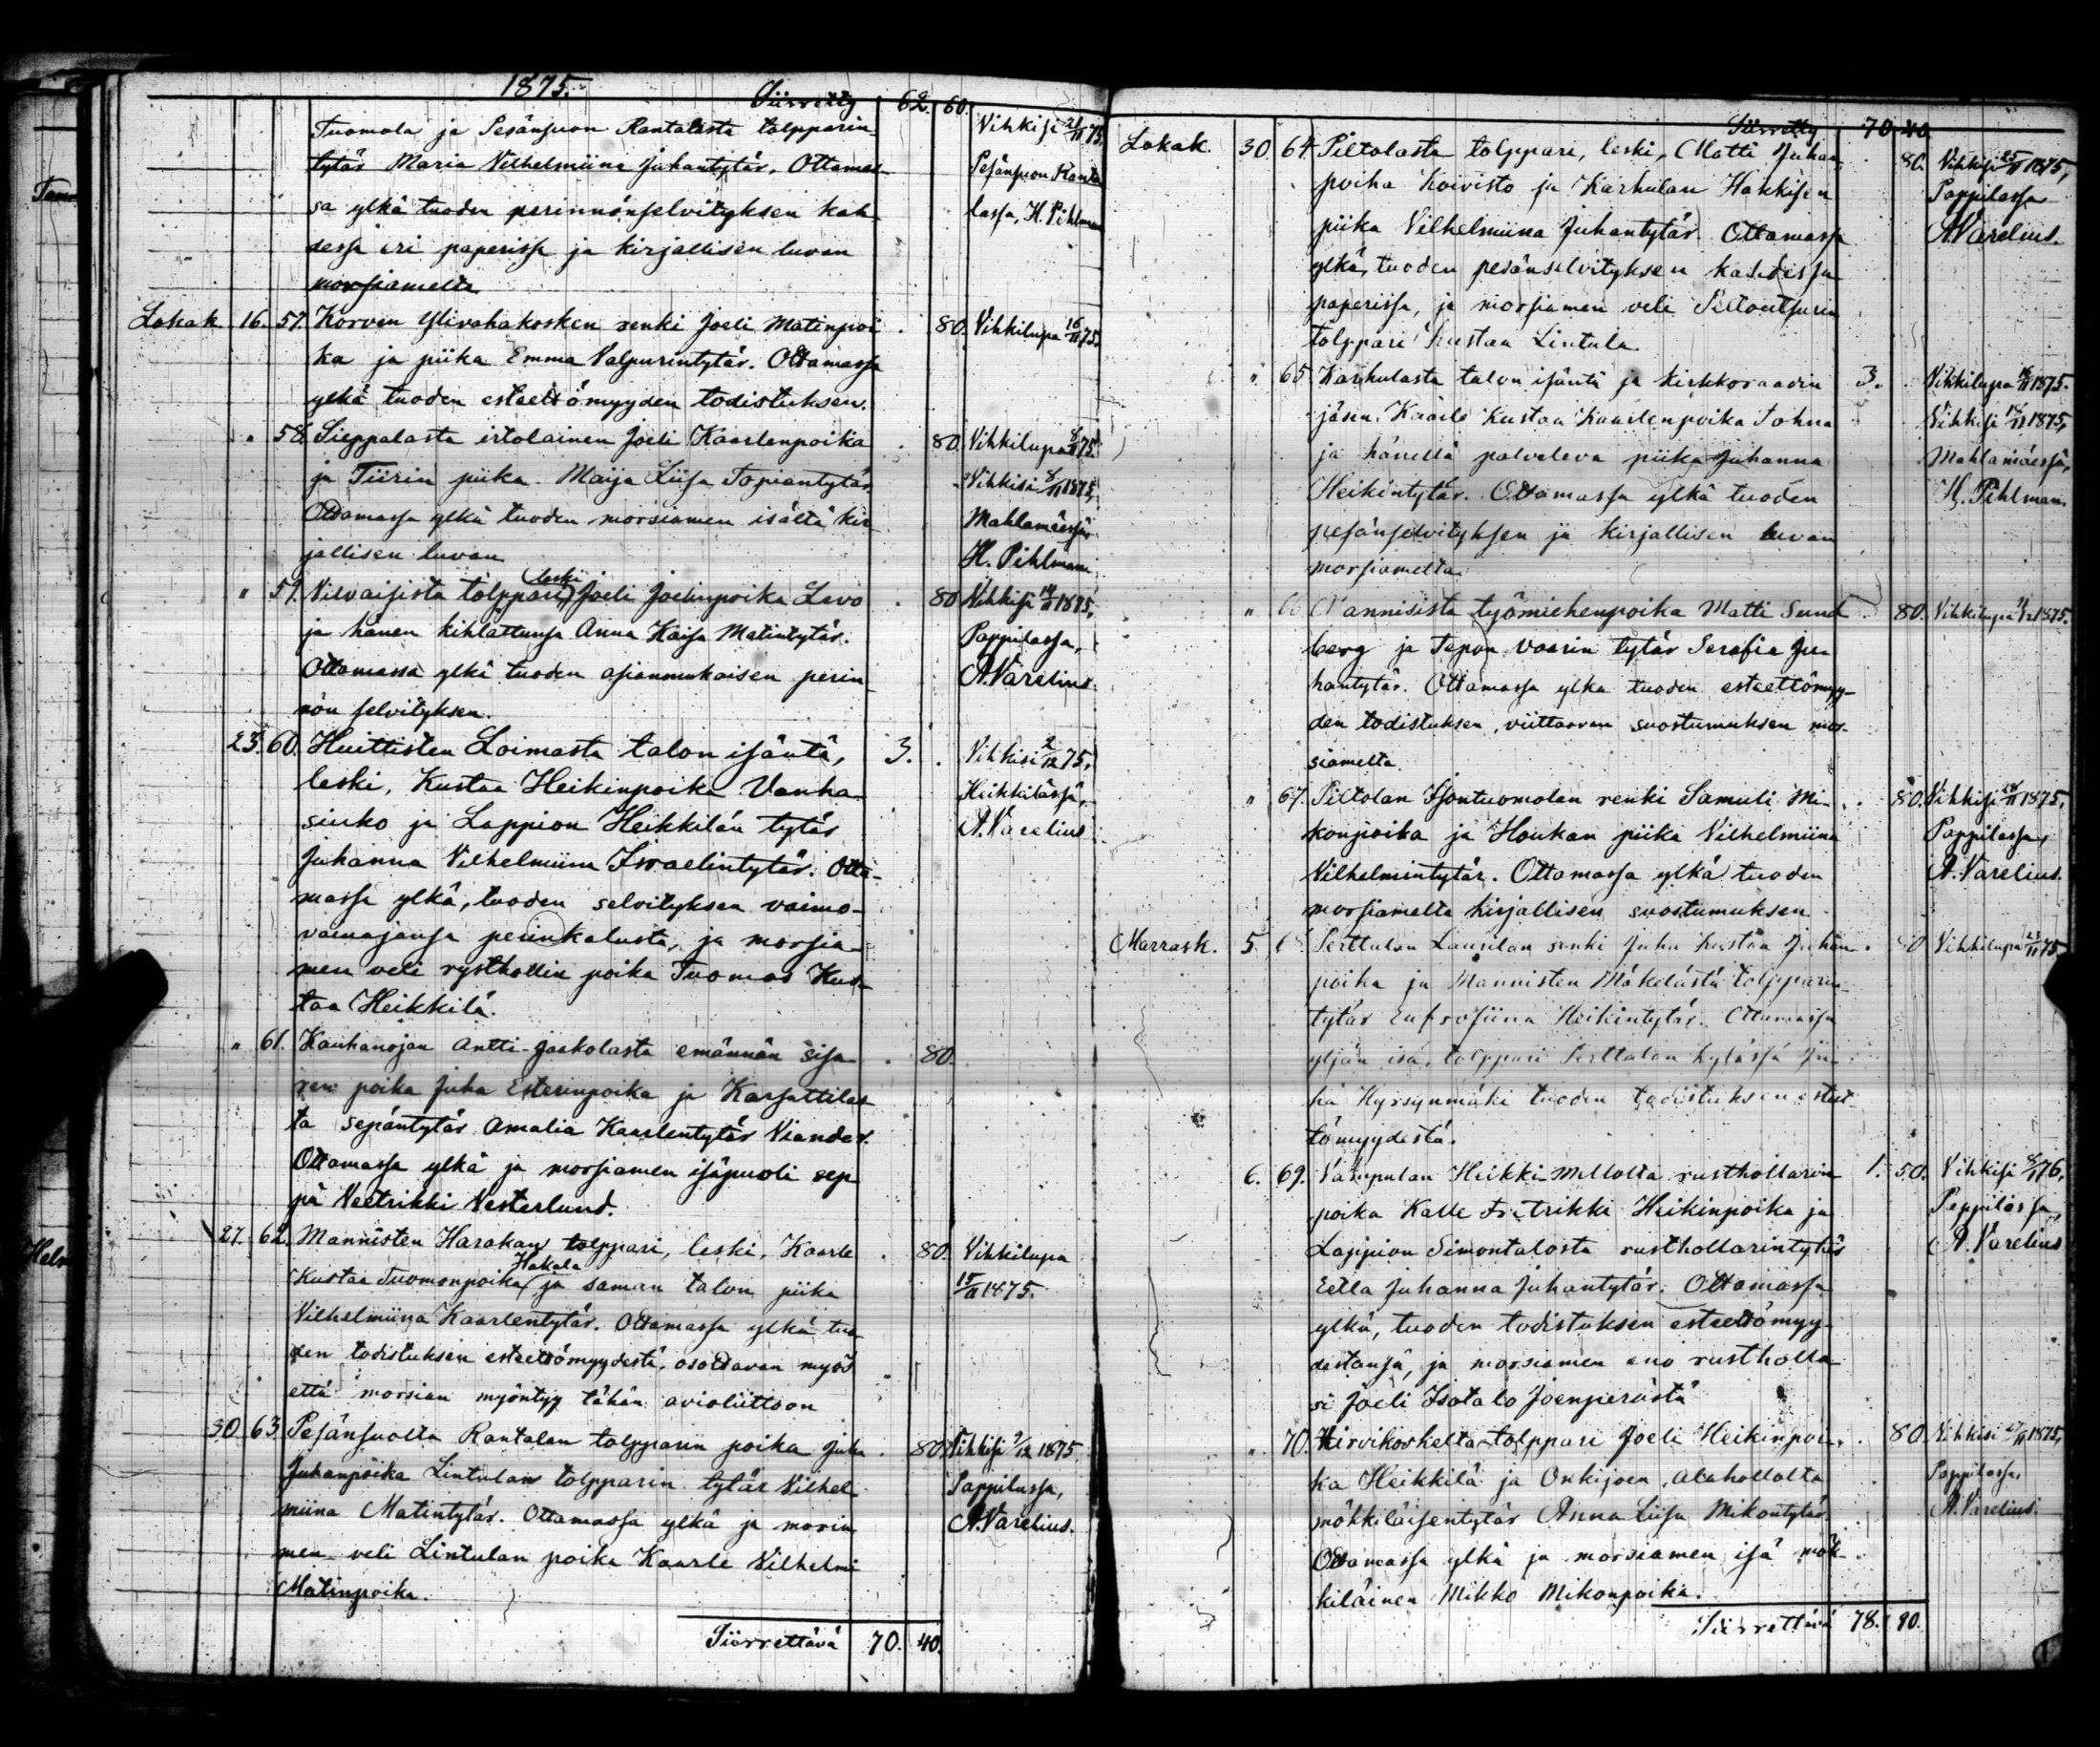 1875.
Siirretty 62. 60.
Tuomola ja Pesänsuon Rantalasta tolpparin-
tytär Maria Vilhelmiina Juhantytär. Ottamas-
sa ylkä tuoden perinnönselvityksen kah-
dessa eri paperissa ja kirjallisen luvan
morsiamelta
Vihkisi 75,
Pesänsuon Ranta
lassa, H. Pihlman
Lokak. 16. 57. Korven Ylivahakosken renki Joeli Matinpoi . 80. Vihkilupa 16/11 75.
ka ja piika Emma Valpurintytär. Ottamassa
ylkä tuoden esteettömyyden todistuksen.
" 58. Sieppalasta irtolainen Joeli Kaarlenpoika . 80. Vihkilupa 8/11 75.
ja Tiirin piika Maija Liisa Topiantytär.
Ottamassa ylkä tuoden morsiamen isältä kir
jallisen luvan
Vihkisi 8/11 1875,
Mahlamäessä
H. Pihlman
" 59. Vilvaisista tolppari, leski Joeli Joelinpoika Levo . 80 Vihkisi 14/11 1875,
ja hänen kihlattunsa Anna Kaisa Matintytär.
Ottamassa ylkä tuoden asianmukaisen perin
nön selvityksen.
Pappilassa,
A. Varelius.
23. 60. Huittisten Loimasta talon isäntä, 3. . Vihkisi 2/12 75,
leski, Kustaa Heikinpoika Vanha
siuko ja Lappion Heikkilän tytär
Juhanna Vilhelmiina Israelintytär. Otta-
massa ylkä, tuoden selvityksen vaimo-
vainajansa perinkalusta, ja morsia-
men veli rysthollin poika Tuomas Kus-
taa Heikkilä.
Heikkilässä,
A. Varelius
" 61. Kauhanojan Antti-Jaakolasta emännän sisa . 80.
ren poika Juha Esterinpoika ja Karsattilas
ta sepäntytär Amalia Kaarlentytär Viander.
Ottamassa ylkä ja morsiamen isäpuoli sep
pä Veetrikki Vesterlund.
27. 62. Mannisten Harakan tolppari, leski, Kaarle . 80. Vihkilupa
Kustaa Tuomonpoika Hakala ja saman talon piika 15/11 1875.
Vilhelmiina Kaarlentytär. Ottamassa ylkä tuo
den todistuksen esteettömyydestä, osottavan myös
että morsian myöntyy tähän avioliittoon
30. 63. Pesänsuolta Rantalan tolpparin poika Juha . 80. Vihkisi 7/12 1875
Juhanpoika Lintulan tolpparin tytär Vilhel
miina Matintytär. Ottamassa ylkä ja morsia
men veli Lintulan poika Kaarle Vilhelmi
Matinpoika.
Pappilassa,
A. Varelius.
Siirrettävä 70. 40.
Siirretty 70 40
Lokak. 30. 64. Piltolasta tolppari, leski, Matti Juhan . 80. Vihkisi 25/11 1875,
poika Koivisto ja Karhulan Hakkisen
piika Vilhelmiina Juhantytär. Ottamassa
ylkä, tuoden pesänselvityksen kahdessa
paperissa, ja morsiamen veli
tolppari Kustaa Lintula.
Pappilassa
A. Varelius.
" 65. Karhulasta talon isäntä ja kirkkoraadin 3. . Vihkilupa 18/11 1875.
jäsen Kaarlo Kustaa Kaarlenpoika Tohna
ja hänellä palveleva piika Juhanna
Heikintytär. Ottamassa ylkä tuoden
pesänselvityksen ja kirjallisen luvan
morsiamelta.
Vihkisi 18/11 1875,
Mahlamäessä,
H. Pihlman.
" 66 Nannisista työmiehenpoika Matti Sund 80. Vihkilupa 1875.
berg ja Tapon vaarin tytär Serafia Ju-
hantytär. Ottamassa ylkä tuoden esteettömyy-
den todistuksen, viittaavan suostumuksen mor-
siamelta.
" 67. Piltolan Isontuomolan renki Samuli Mi- . 80. Vihkisi 28/11 1875,
konpoika ja Houkan piika Vilhelmiina
Vilhelmintytär. Ottamassa ylkä tuoden
morsiamelta kirjallisen suostumuksen
Pappilassa,
A. Varelius.
Marrask. 5. Perttulan Laurilan renki Juha Kustaa Juhan . 80 Vihkilupa 23/11 75.
poika ja Mannisten Mäkelästä tolpparin-
tytär Eufrosiina Heikintytär. Ottamassa
yljän isä, tolppari Perttulan kylässä Ju-
ha Hyrsynmäki tuoden todistuksen esteet-
tömyydestä.
6. 69. Vampulan Heikki-Mellolta rusthollarin 1. 50. Vihkisi 76,
poika Kalle Fretrikki Heikinpoika ja
Lappion Simontalosta rusthollarintytär
Eella Juhanna Juhantytär. Ottamassa
ylkä, tuoden todistuksen esteettömyy-
destänsä, ja morsiamen eno rustholla
ri Joeli Isotalo Joenperästä
Pappilassa,
A. Varelius
" 70. Kirvikoskelta tolppari Joeli Heikinpoi- . 80. Vihkisi 1875,
ka Heikkilä ja Onkijoen Alahollolta
mökkiläisentytär Anna Liisa Mikontytär.
Ottamassa ylkä ja morsiamen isä mök-
kiläinen Mikko Mikonpoika.
Pappilassa,
A. Varelius.
Siirrettävä 78. 90.